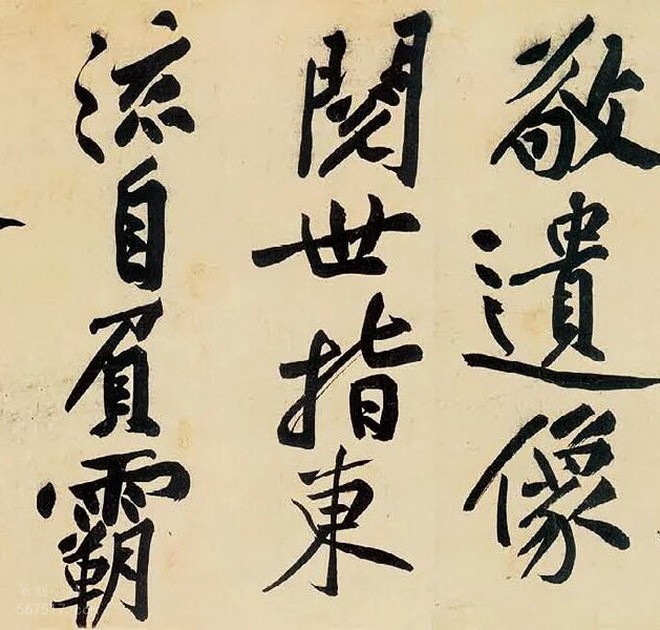 敬遺像
閱世指東
流自負霸